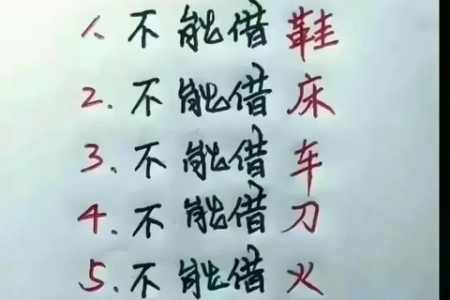 1. 不能借鞋
2. 不能借床
3. 不能借车
4. 不能借刀
5. 不能借火